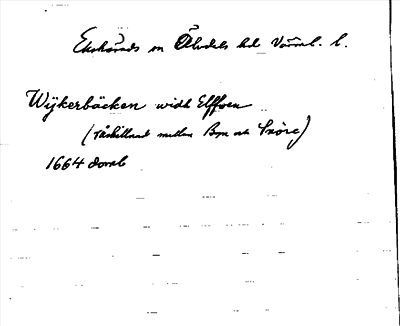 Ekshärads sn Älvdals hd Värml. l.
Wijkerbäcken widh Elffwen
(råskillnad mellan Byn och Snöre)
1664 domb